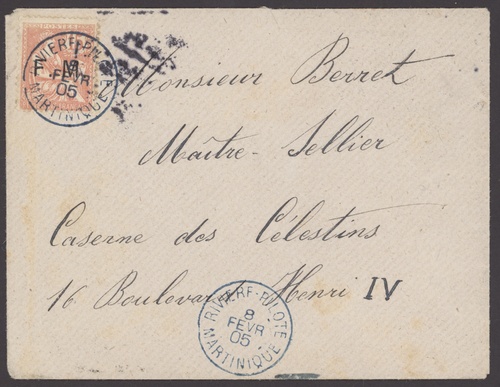 RIVIERE-PILOTE
F M
8
FEVR
05
MARTINIQUE
Monsieur Berret
Maître-Sellier
Caserne des Célestins
16 Boulevard Henri IV
RIVIERE-PILOTE
8
FEVR
05
MARTINIQUE